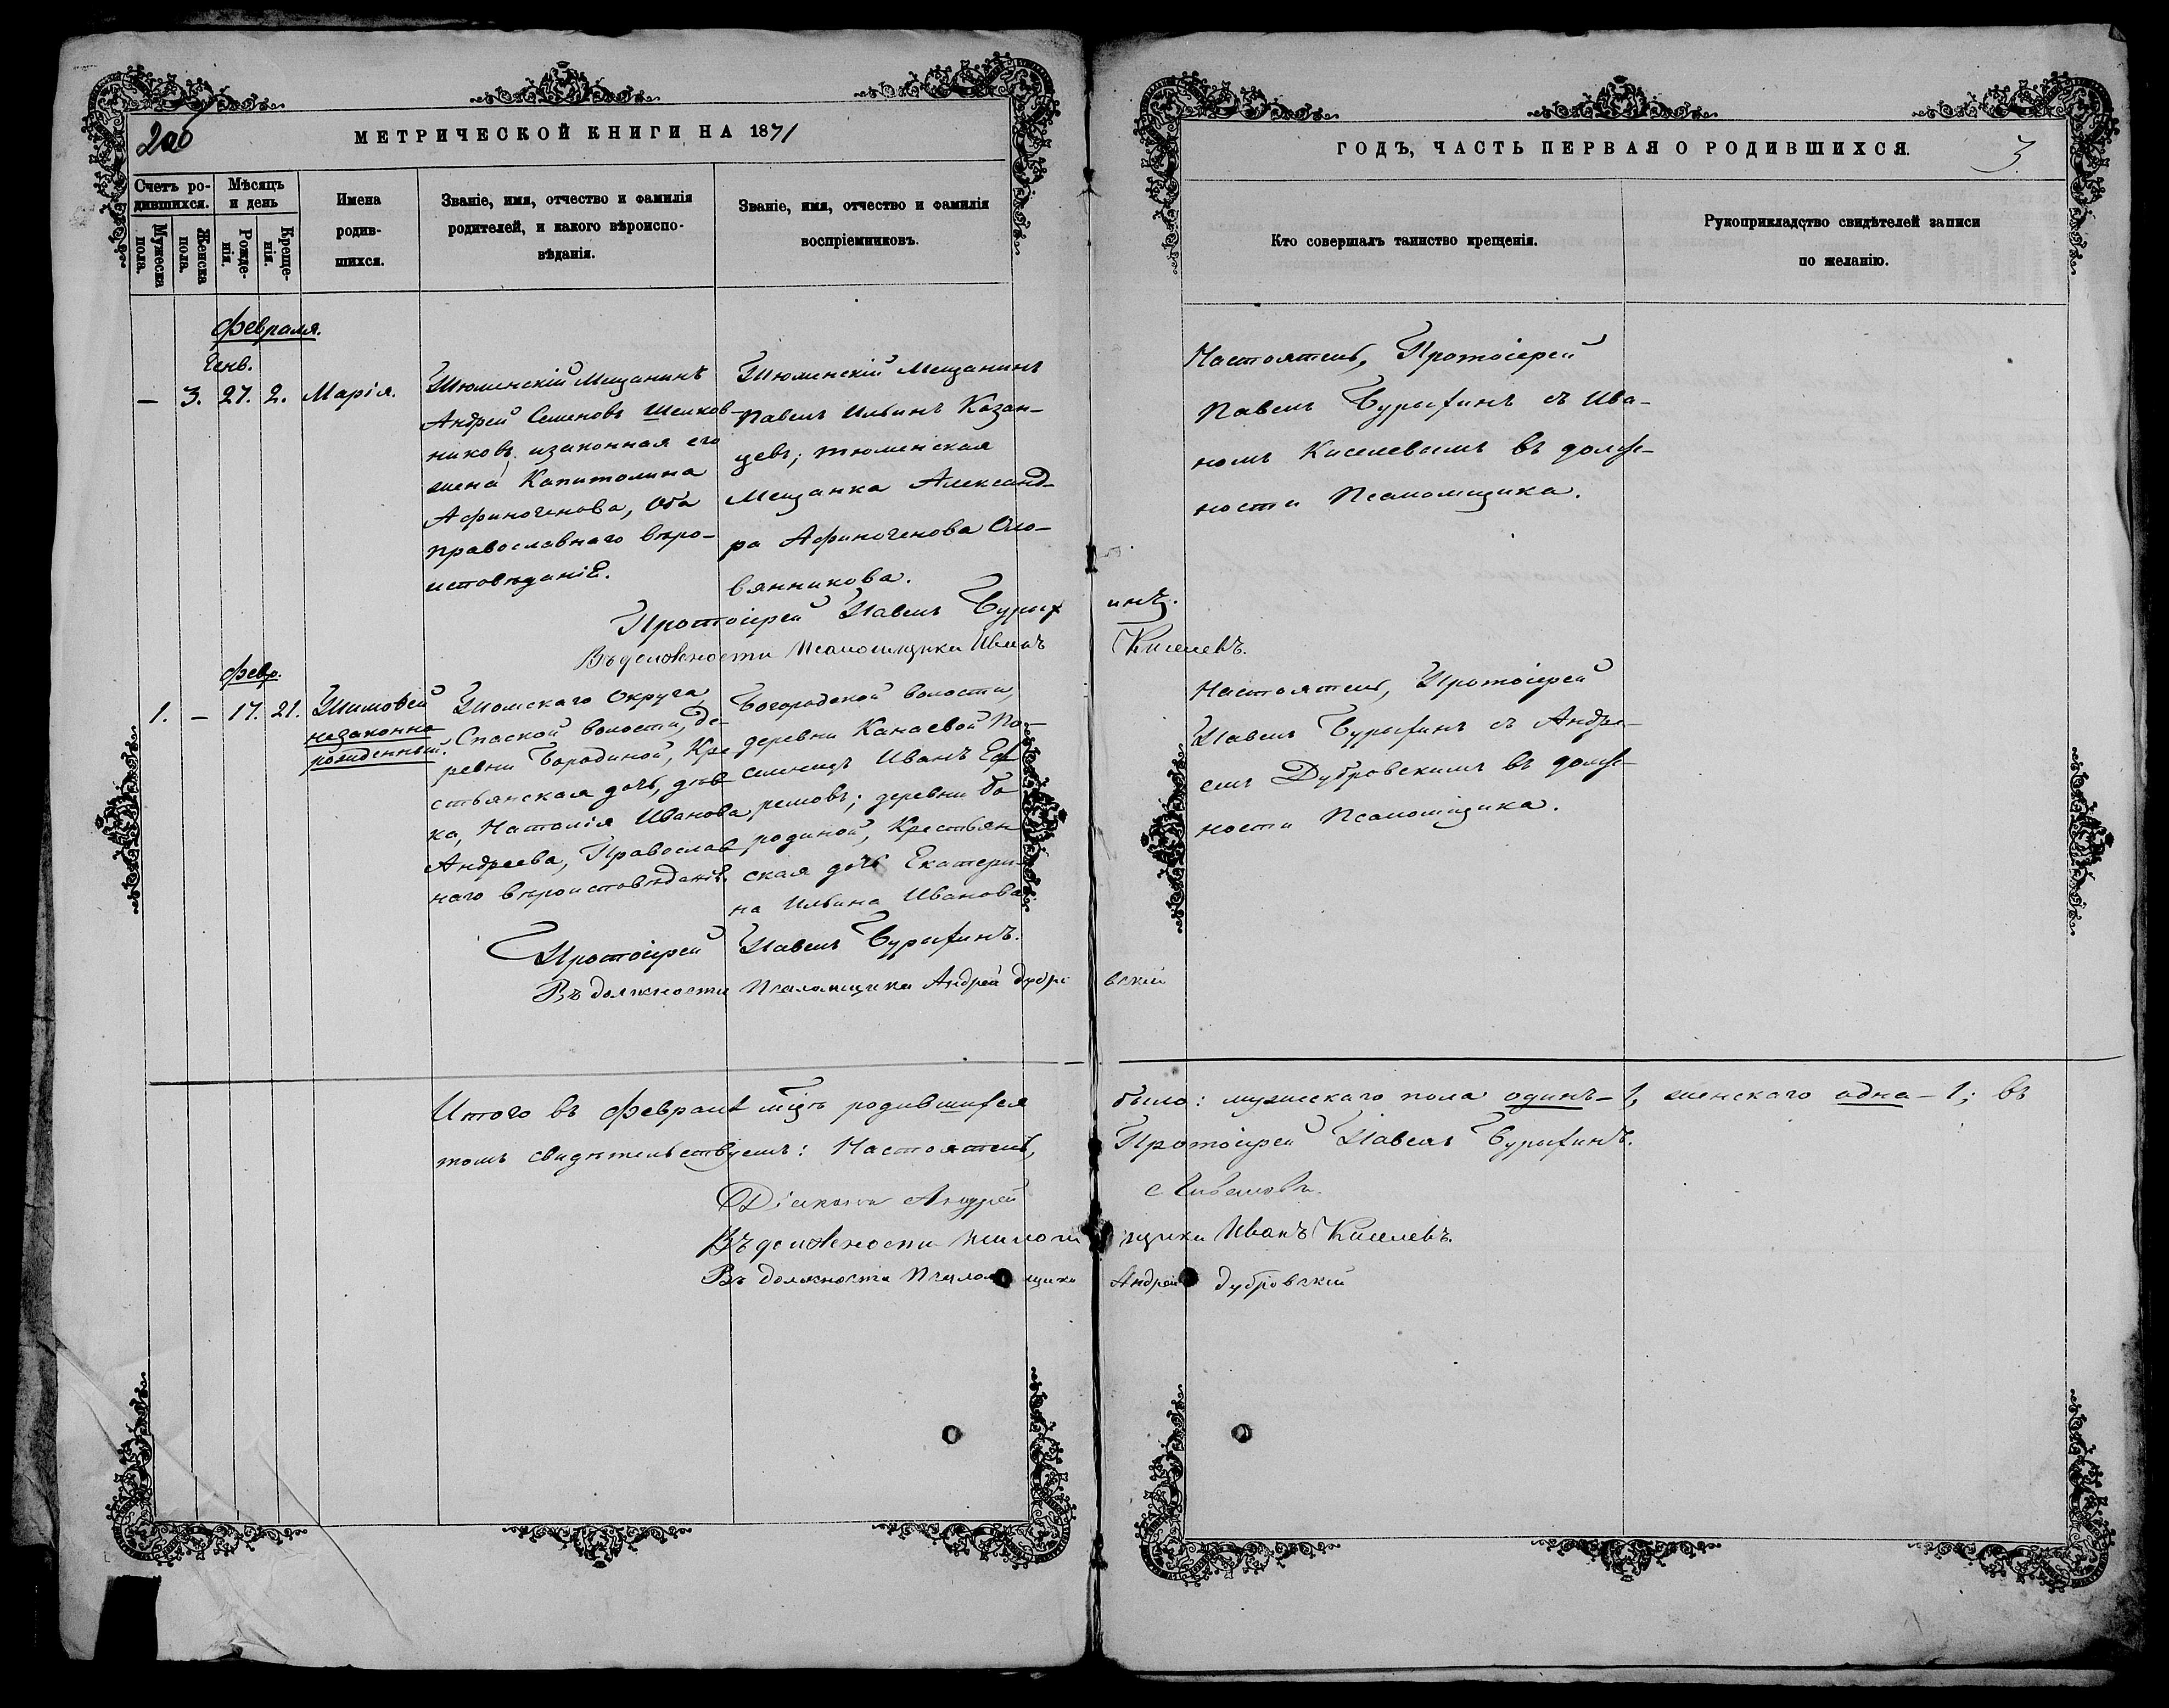 2об
МЕТРИЧЕСКОЙ КНИГИ НА 1871
ГОДЪ, ЧАСТЬ ПЕРВАЯ О РОДИВШИХСЯ.
3
Счетъ родившихся.
Мужеска пола.
Женска пола.
Мѣсяцъ и день
Рожденія.
Крещенія.
Имена
родив-
шихся.
Званіе, имя, отчество и фамилія
родителей, и какого вѣроиспо-
вѣданія.
Званіе, имя, отчество и фамилія
воспріемниковъ.
Кто совершалъ таинство крещенія.
Рукоприкладство свидѣтелей записи
по желанію.
Февраля.
Генв.
— 3. 27. 2. Марія.
Тюменскій Мещанинъ
Андрей Семеновъ Шелков-
никовъ, изаконная его
жена Капитолина
Афиногенова, оба
православнаго вѣро-
исповѣданія.
Тюменскій Мещанинъ
Павелъ Ильинъ Казан-
цевъ; тюменская
Мещанка Александ-
ра Афиногенова Оло-
вянникова.
Настоятель, Протоіерей
Павелъ Бурыхинъ съ Ива-
номъ Киселевымъ въ долж-
ности Псаломщика.
Протоіерей Павелъ Бурыхинъ.
Въ должности Псаломщика Иванъ Киселевъ.
Февр.
1. — 17. 21. Тимофей
незаконно
рожденный.
Томскаго Округа,
Спаской волости, де-
ревни Бородиной, Кре
стьянская дочь, дѣв
ка, Наталія Иванова
Андреева, Православ
наго вѣроисповѣданія.
Богородской волости,
деревни Канаевой По-
селенецъ Иванъ Еф
ремовъ; деревни Бо
родиной, Крестьян
ская дочь Екатери-
на Ильина Иванова.
Настоятель, Протоіерей
Павелъ Бурыхинъ съ Андре-
емъ Дубровскимъ въ долж-
ности Псаломщика.
Протоіерей Павелъ Бурыхинъ.
Въ должности Псаломщика Андрей Дубровскій
Итого въ Февралѣ м͠цѣ родившихся было: мужескаго пола одинъ—1, женскаго одна—1; въ
томъ свидѣтельствуемъ: Настоятель, Протоіерей Павелъ Бурыхинъ.
Діаконъ Андрей
Въ должности Псаломщика Иванъ Киселевъ.
Въ должности Псаломщика Андрей Дубровскій